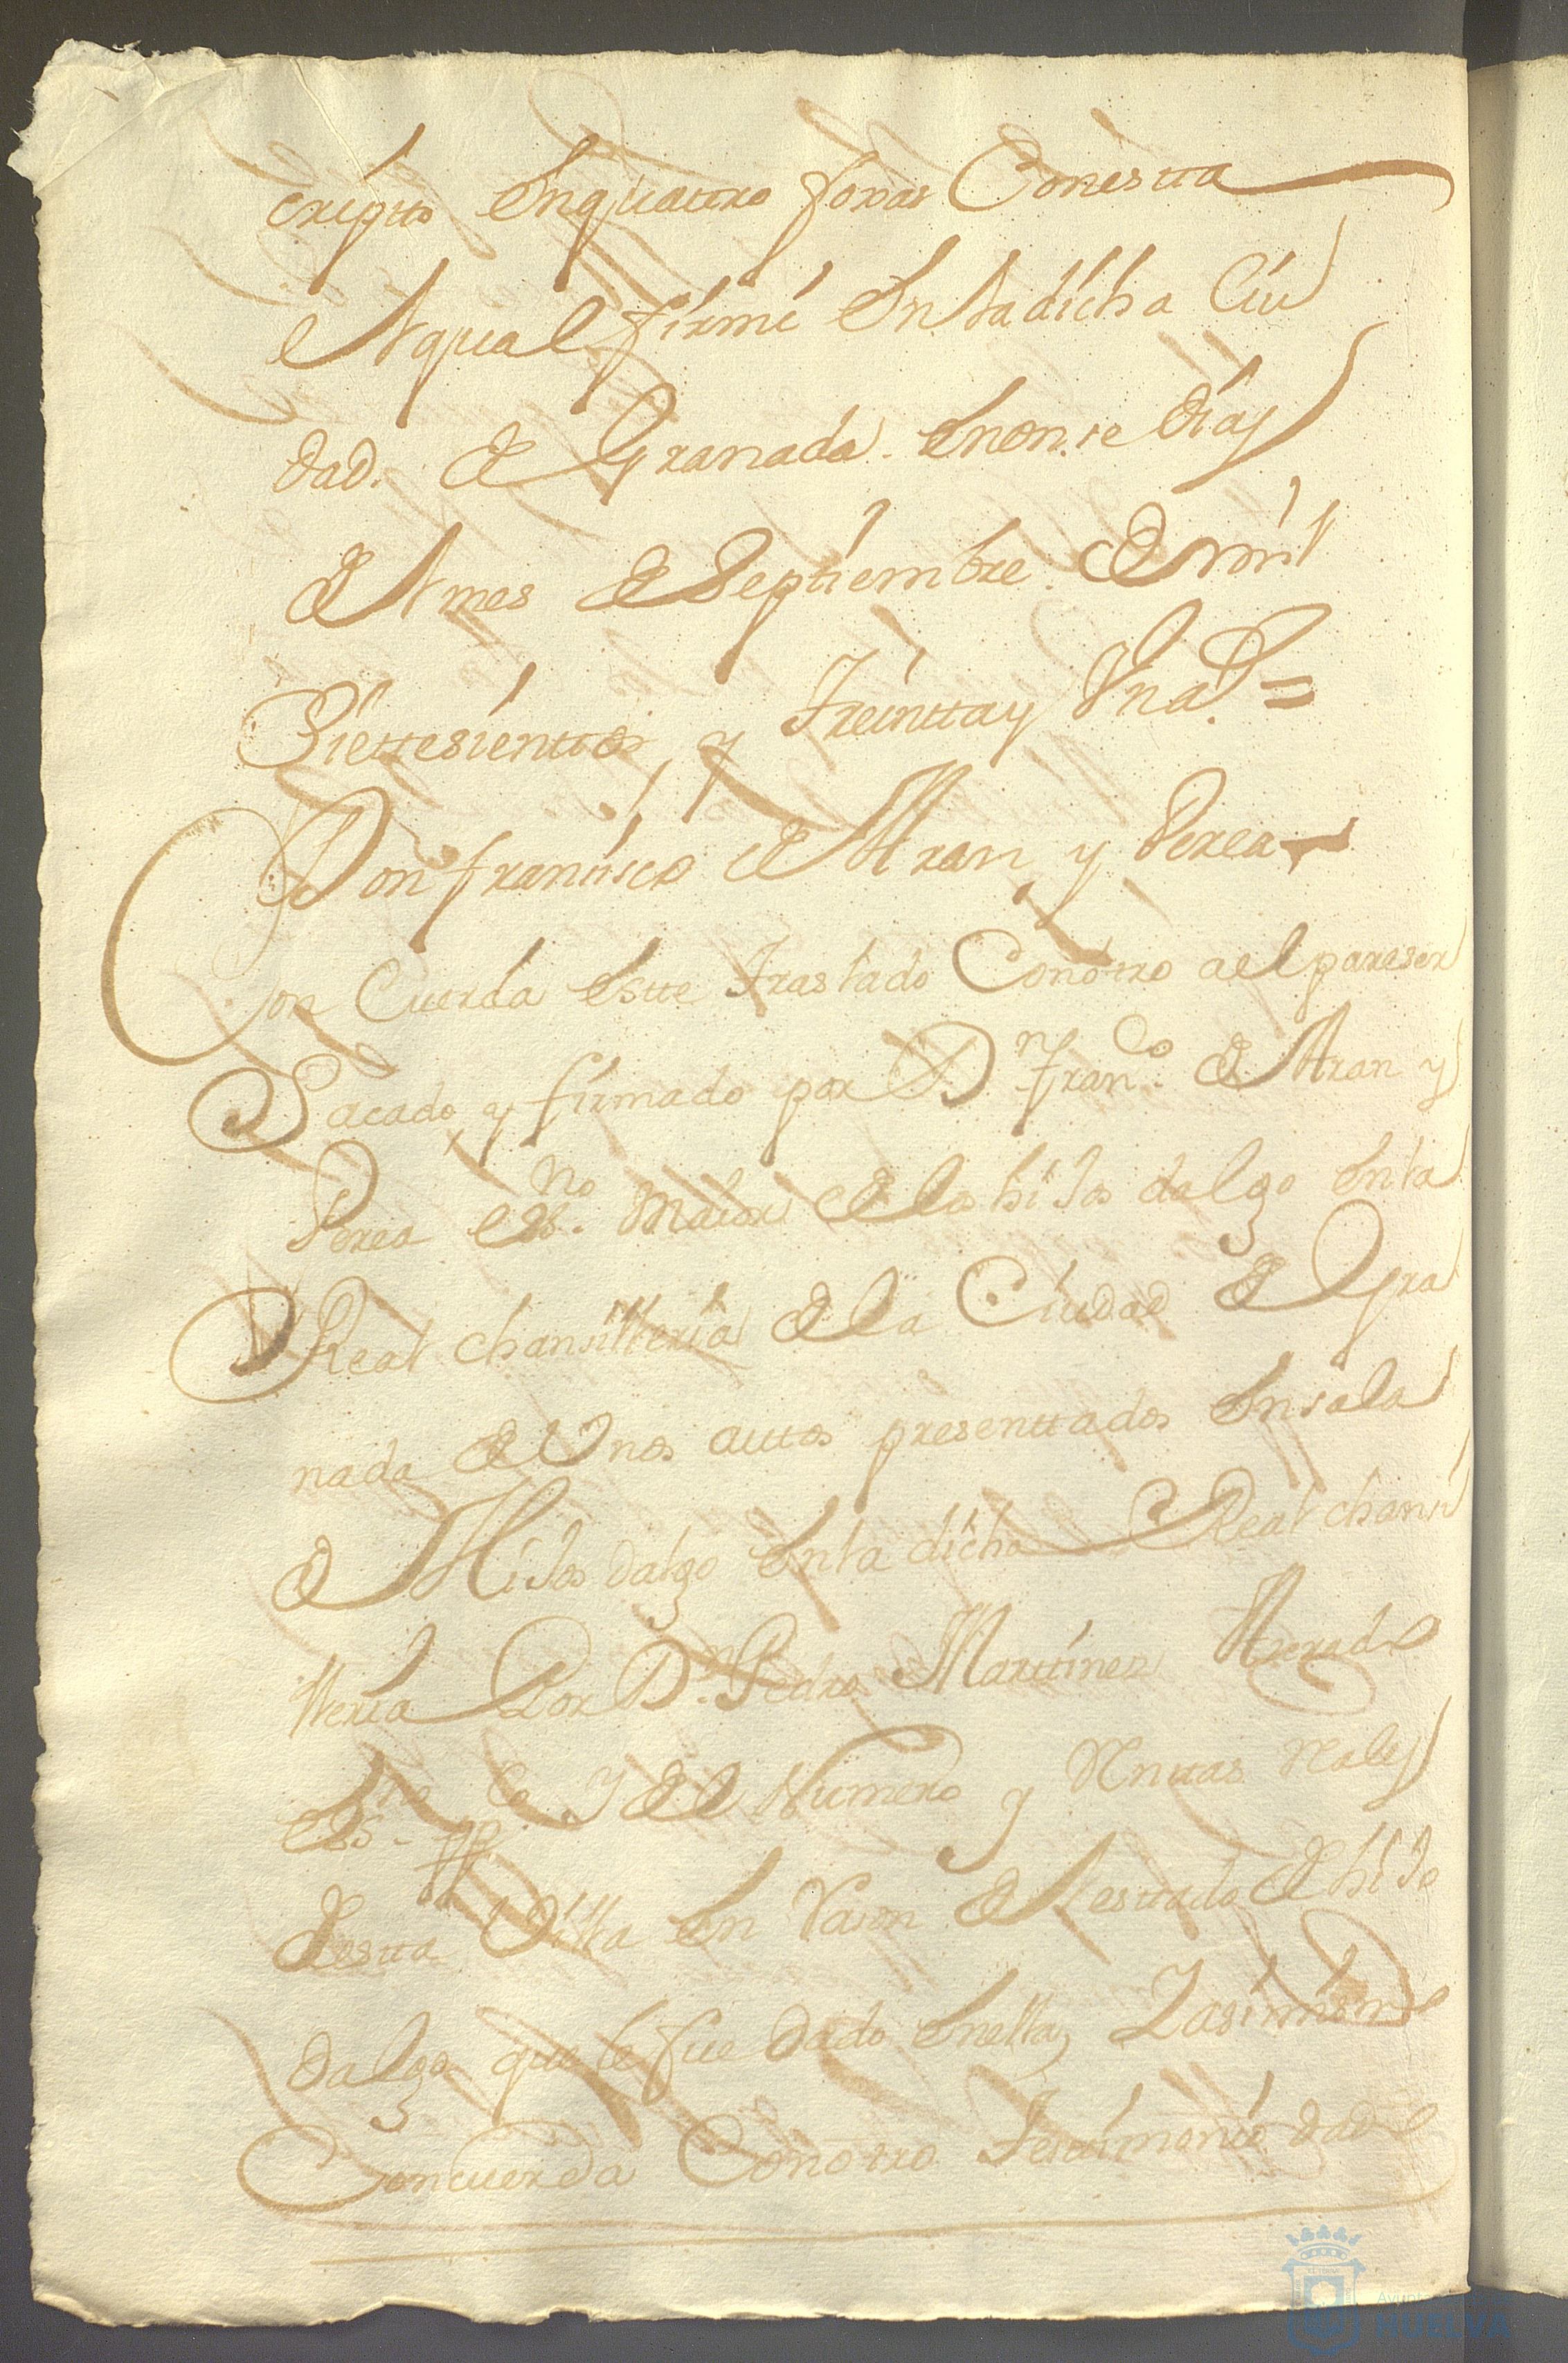 cripto En quattro foxas Con estta
el qual firmé En la dicha Ciu
dad. de Granada. En onse dias
del mes de Septiembre. de mil
Siettesienttos y Treintta y Un a.s =
Don francisco de Aran y Perea
Con Cuerda Estte Traslado Con otro al pareser
Sacado y firmado por D.n fran.co de Aran y
Perea ess.no Maior de los hiJos dalgo En la
Real chansilleria de la Ciudad de Gra
nada de Unos auttos presenttados En sala
de HiJos dalgo En la dicha Real chansi
lleria Por D.n Pedro Marttinez
ess.no pp.co y del Numero y Renttas Rales
de estta Villa En Rason del esttado de hiJo
dalgo que le fue dado En ella, Y asimismo
Concuerda Con otro Testtimonio dado
Ayuntamiento de
HUELVA